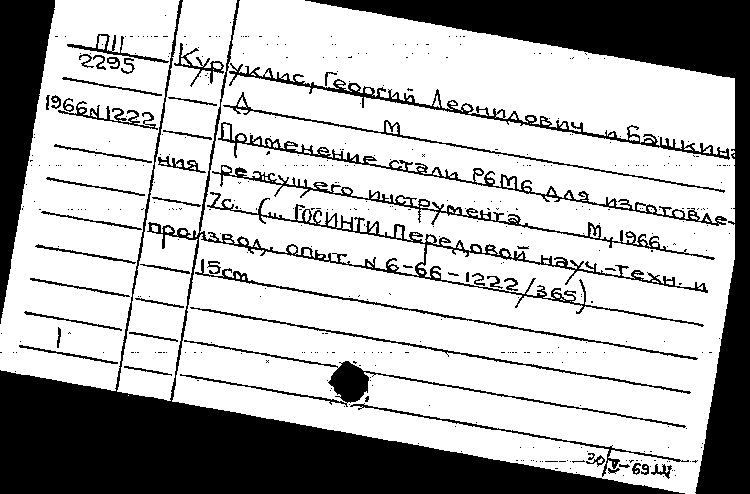 П11
2295
Куруклис, Георгий Леонидович и Башкин
1966 N 1222
Д
М
Применение стали Р6М6 для изготовле-
ния режущего инструмента. М., 1966.
7с. (... ГОСИНТИ. Передовой науч.-техн. и
производ. опыт. N 6-66-1222/365).
15cm
1
30/V-69